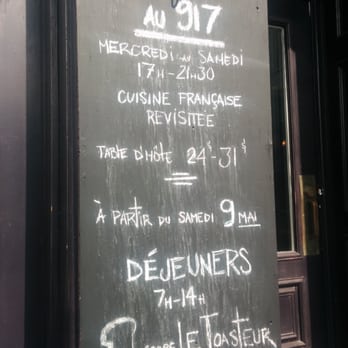 AU 917
MERCREDI AU SAMEDI
17H-21H30
CUISINE FRANÇAISE
REVISITÉE
TABLE D'HÔTE 24$-31$
À PARTIR DU SAMEDI 9 MAI
DÉJEUNERS
7H-14H
LE TOASTEUR